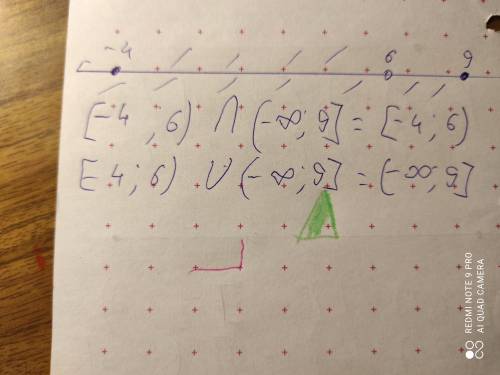 -4 6 9
[-4 ; 6) ∩ (-∞; 9] = [-4; 6)
[-4; 6) ∪ (-∞; 9] = (-∞; 9]
REDMI NOTE 9 PRO
AI QUAD CAMERA